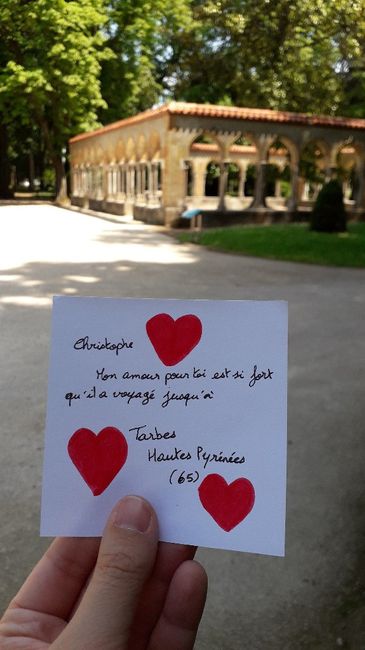 Christophe
Mon amour pour toi est si fort
qu'il a voyagé jusqu'à
Tarbes
Hautes Pyrénées
(65)